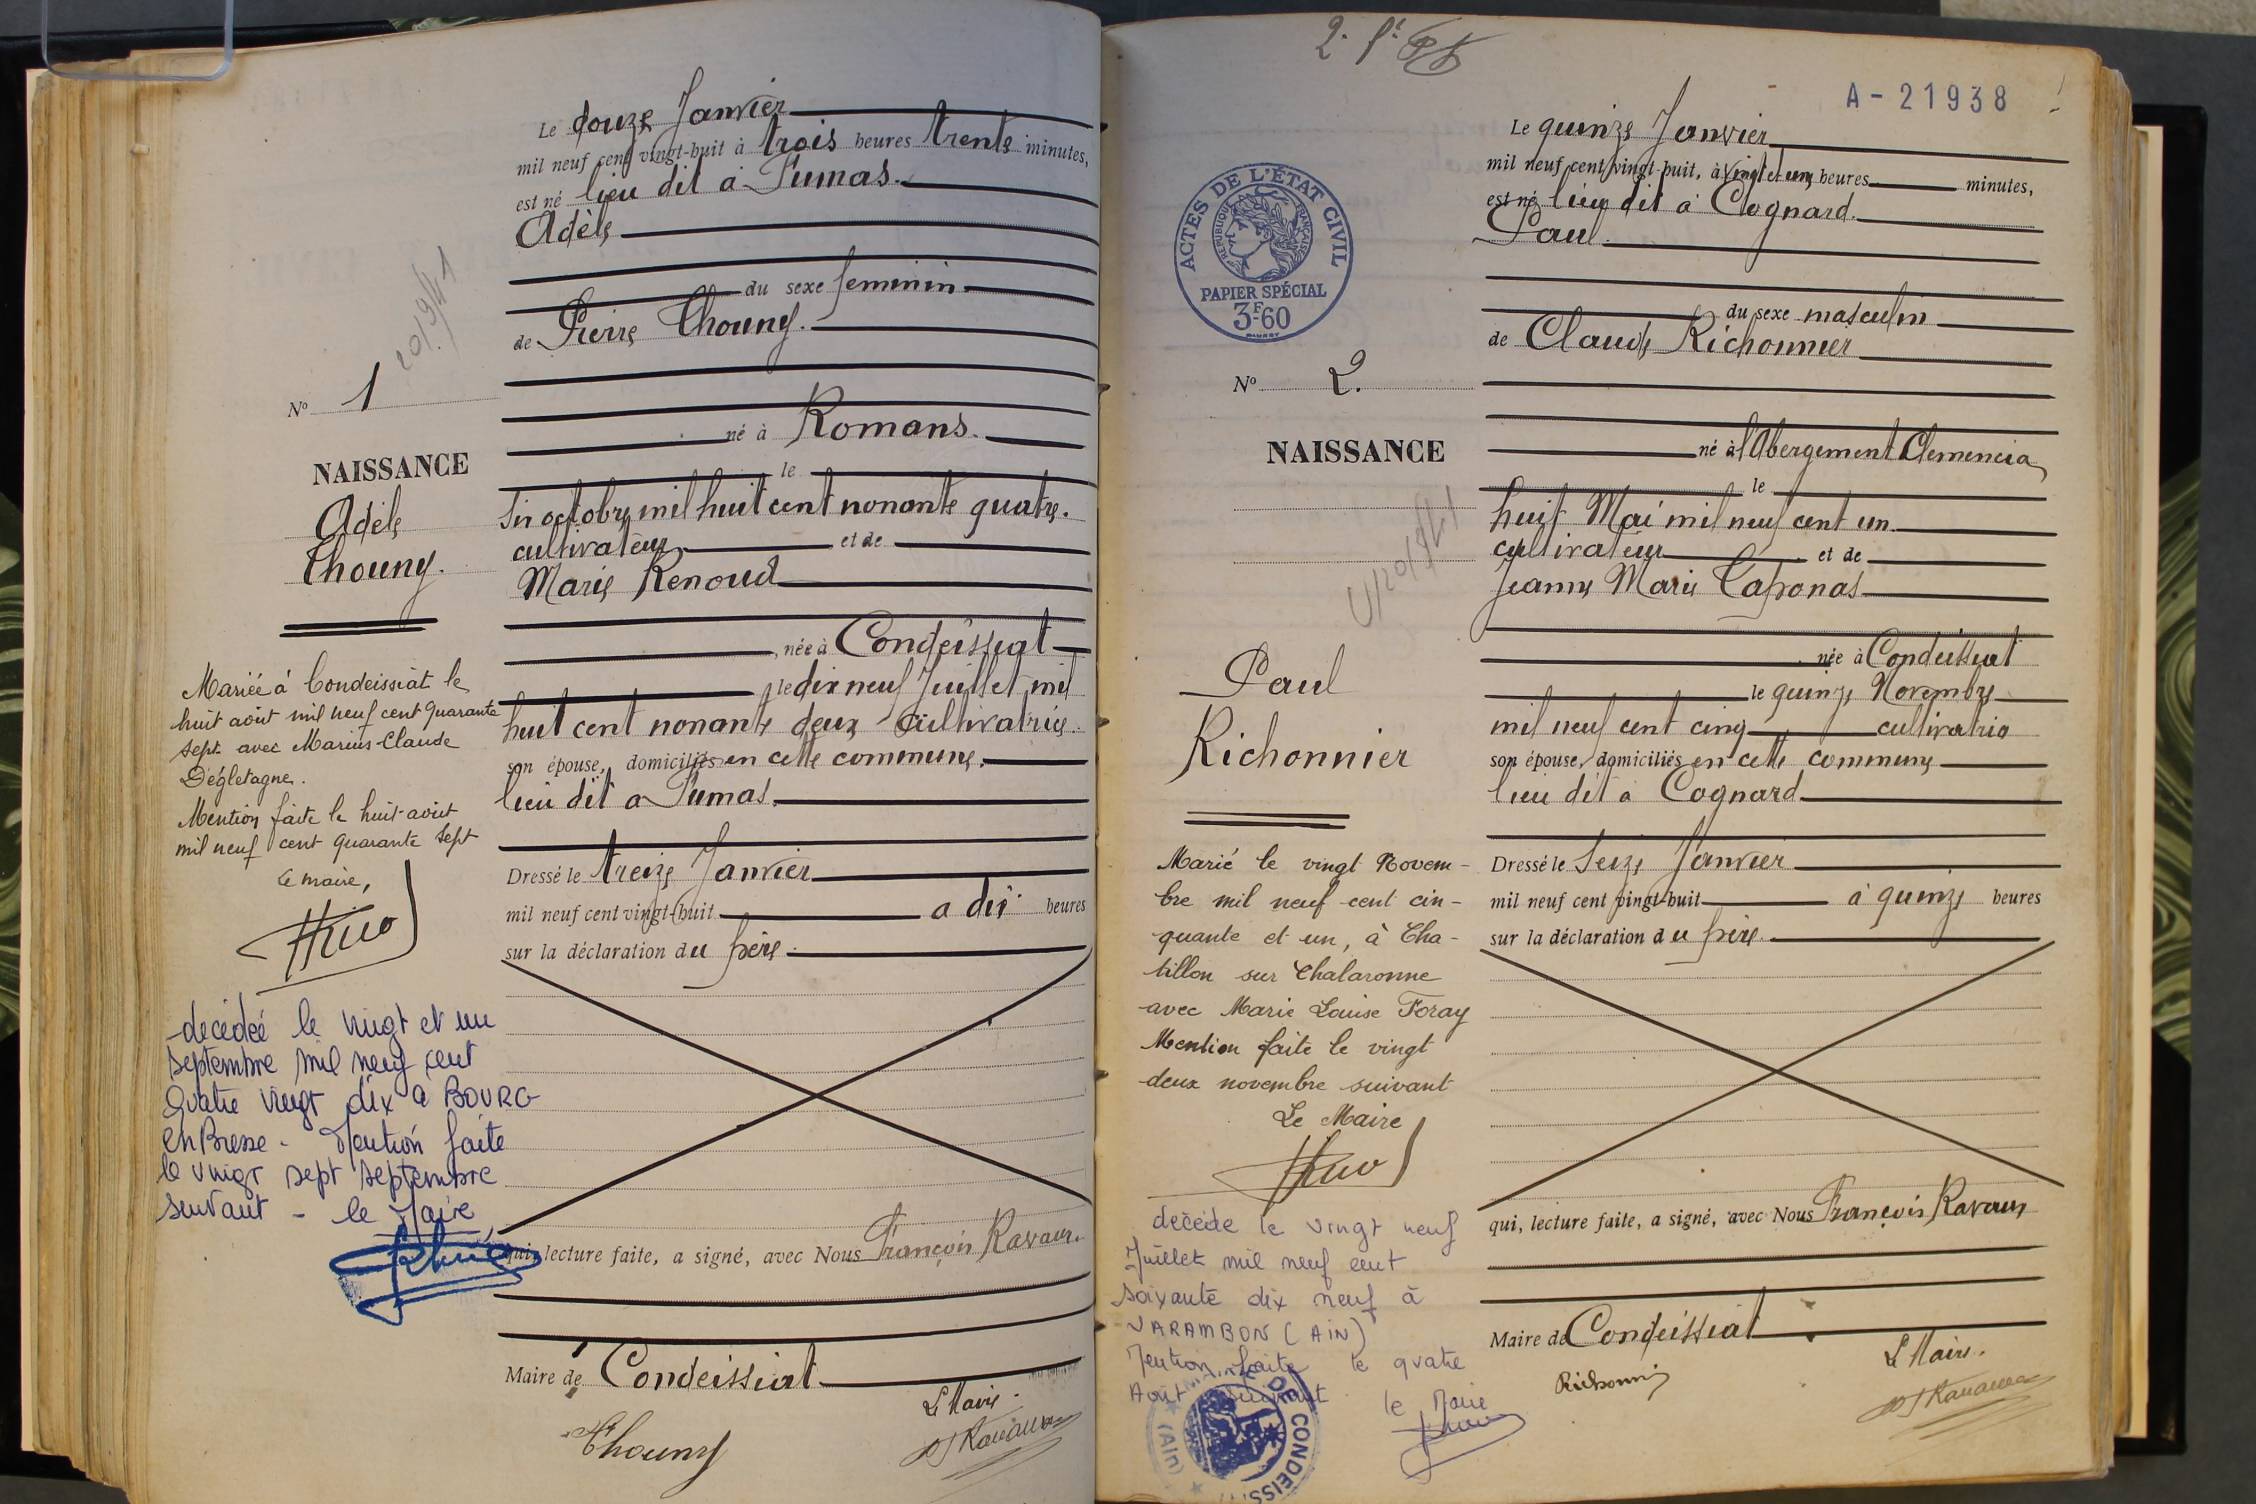 Le douze Janvier
mil neuf cent vingt-huit à trois heures trente minutes,
est né lieu dit à Pumas.
Adèle
du sexe feminin
de Pierre Thouny.
20/9/41
N° 1
né à Romans.
NAISSANCE
le
six octobre mil huit cent nonante quatre.
Adèle
cultivateur et de
Thouny.
Marie Renoud
née à Condeissiat
le dix neuf Juillet mil
huit cent nonante deux cultivatrice.
son épouse, domiciliés en cette commune.
lieu dit à Pumas.
Mariée à Condeissiat le
huit août mil neuf cent quarante
sept avec Marius-Claude
Dégletagne.
Mention faite le huit août
mil neuf cent quarante sept
Le maire,
Dressé le treize Janvier
mil neuf cent vingt-huit a dix heures
sur la déclaration du père
decedeé le vingt et un
septembre mil neuf cent
quatre vingt dix a BOURG
en Bresse - Mention faite
le vingt sept septembre
suivant - le Maire
qui, lecture faite, a signé, avec Nous François Ravaux.
Maire de Condeissiat
Le Maire.
Thouny
A-21938
Le quinze Janvier
mil neuf cent vingt-huit, à vingt et une heures minutes,
est né lieu dit à Cognard.
Paul.
ACTES DE L'ÉTAT CIVIL
RÉPUBLIQUE FRANÇAISE
PAPIER SPÉCIAL
3F-60
du sexe masculin
de Claude Richonnier
N° 2.
né à l'Abergement Clemencia
NAISSANCE
le
huit Mai mil neuf cent un
cultivateur et de
Jeanne Marie Caponas
20/9/41
née à Condeissiat
le quinze Novembre
mil neuf cent cinq cultivatrice
son épouse, domiciliés en cette commune
lieu dit à Cognard
Paul
Richonnier
Marié le vingt Novem-
bre mil neuf cent cin-
quante et un, à Cha-
tillon sur Chalaronne
avec Marie Louise Foray
Mention faite le vingt
deux novembre suivant
Le Maire
Dressé le seize Janvier
mil neuf cent vingt-huit à quinze heures
sur la déclaration du père.
décédé le vingt neuf
Juillet mil neuf cent
soixante dix neuf à
VARAMBON (AIN)
Mention faite le quatre
Août suivant
le Maire
DE CONDEISSIAT
(AIN)
qui, lecture faite, a signé, avec Nous François Ravaux
Maire de Condeissiat
Le Maire.
Richonnier